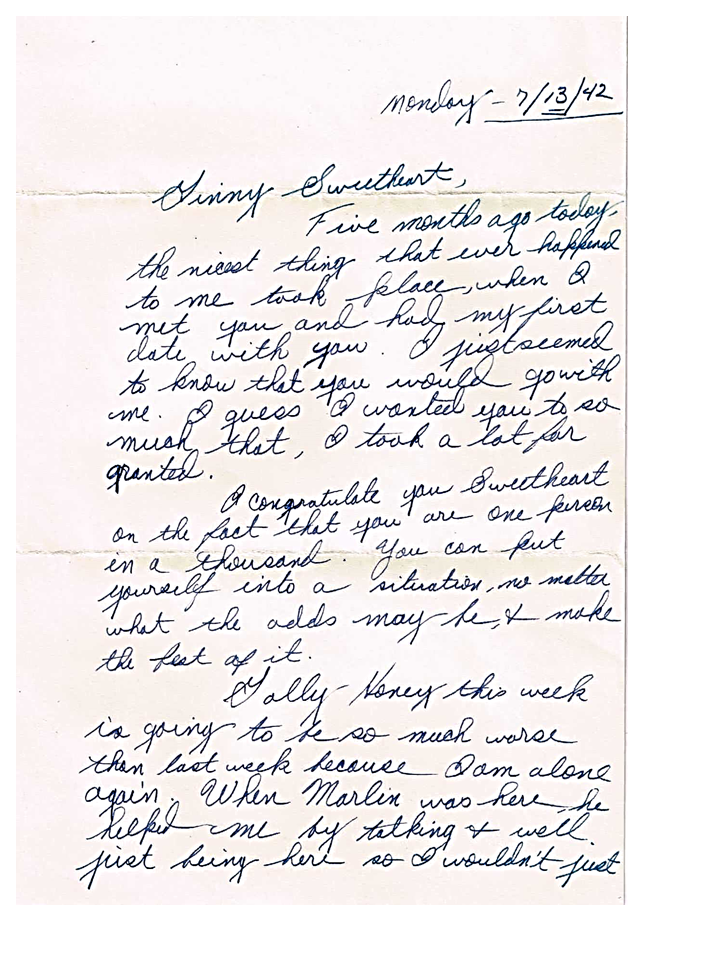 Monday - 7/13/42
Ginny Sweetheart,
Five months ago today,
the nicest thing that ever happened
to me took place, when I
met you and had my first
date with you. I just seemed
to know that you would go with
me. I guess I wanted you to so
much that, I took a lot for
granted.
I congratulate you Sweetheart
on the fact that you are one person
in a thousand. You can put
yourself into a situation, no matter
what the odds may be, & make
the best of it.
Golly Honey this week
is going to be so much worse
than last week because I am alone
again. When Marlin was here, he
helped me by talking & well
just being here so I wouldn't just